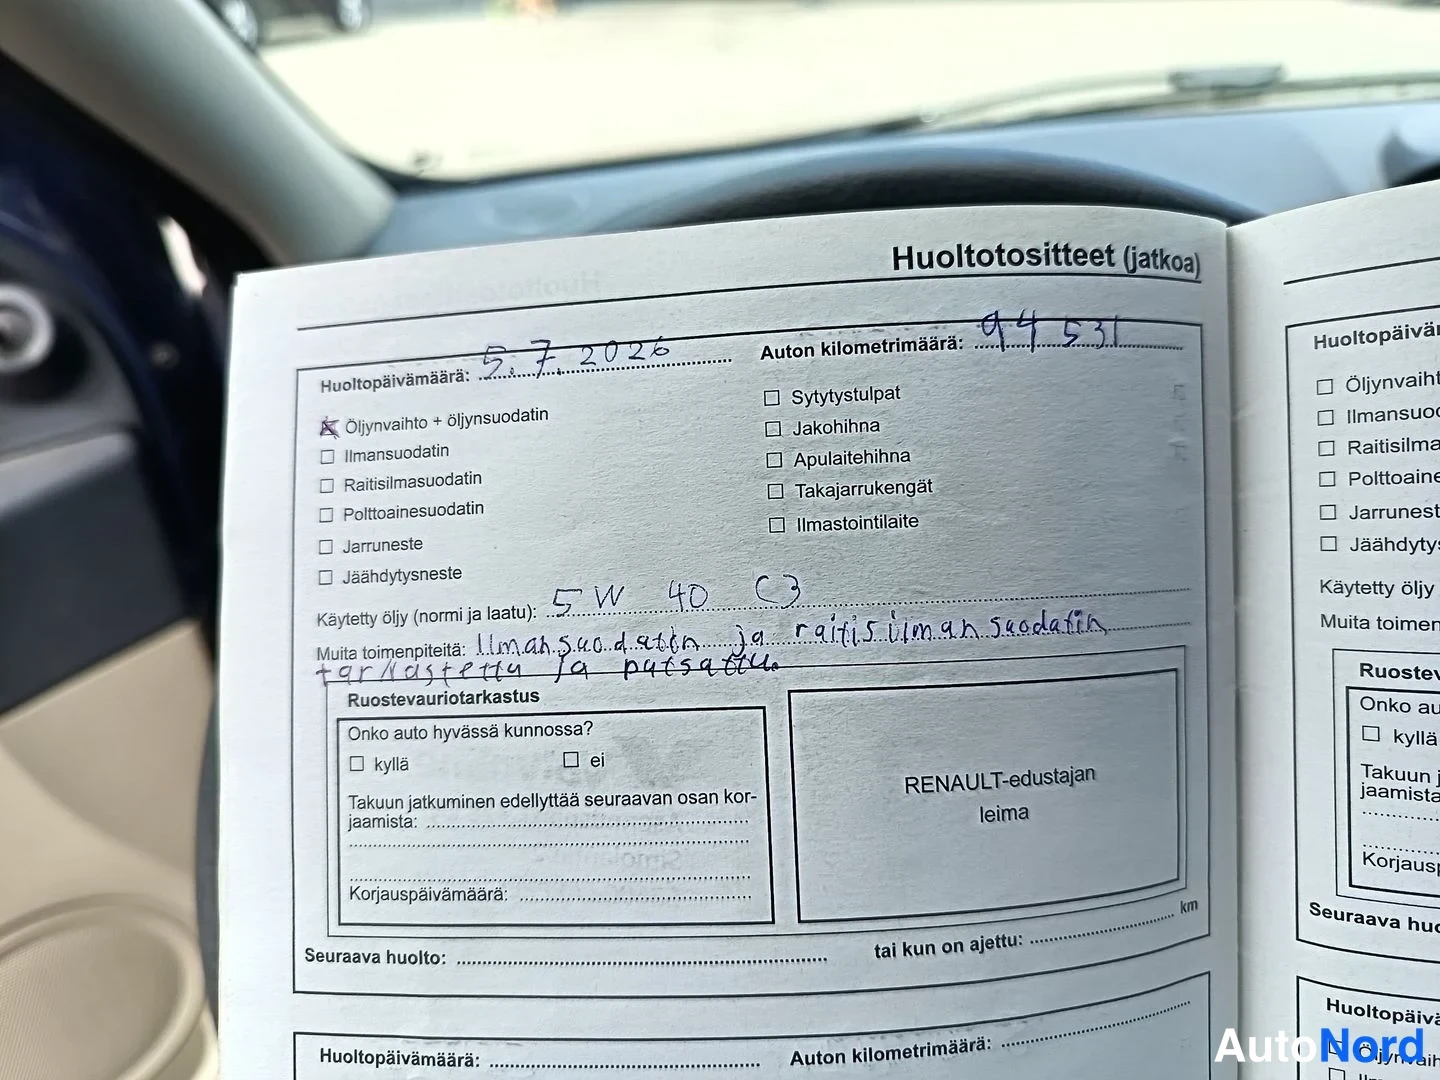 Huoltotositteet (jatkoa)
Huoltopäivämäärä: 5.7.2026
Auton kilometrimäärä: 94 531
Öljynvaihto + öljynsuodatin
Ilmansuodatin
Raitisilmasuodatin
Polttoainesuodatin
Jarruneste
Jäähdytysneste
Sytytystulpat
Jakohihna
Apulaitehihna
Takajarrukengät
Ilmastointilaite
Käytetty öljy (normi ja laatu): 5W 40 C3
Muita toimenpiteitä: Ilmansuodatin ja raitisilmansuodatin
tarkastettu ja putsattu.
Ruostevauriotarkastus
Onko auto hyvässä kunnossa?
kyllä ei
Takuun jatkuminen edellyttää seuraavan osan kor-
jaamista:
Korjauspäivämäärä:
RENAULT-edustajan
leima
Seuraava huolto:
tai kun on ajettu: km
Huoltopäivämäärä:
Auton kilometrimäärä:
Huoltopäivä
Öljynvaiht
Ilmansuo
Raitisilma
Polttoaine
Jarrunest
Jäähdyty
Käytetty öljy
Muita toimen
Ruostev
Onko au
kyllä
Takuun j
jaamista
Korjausp
Seuraava huo
Huoltopäivä
AutoNord